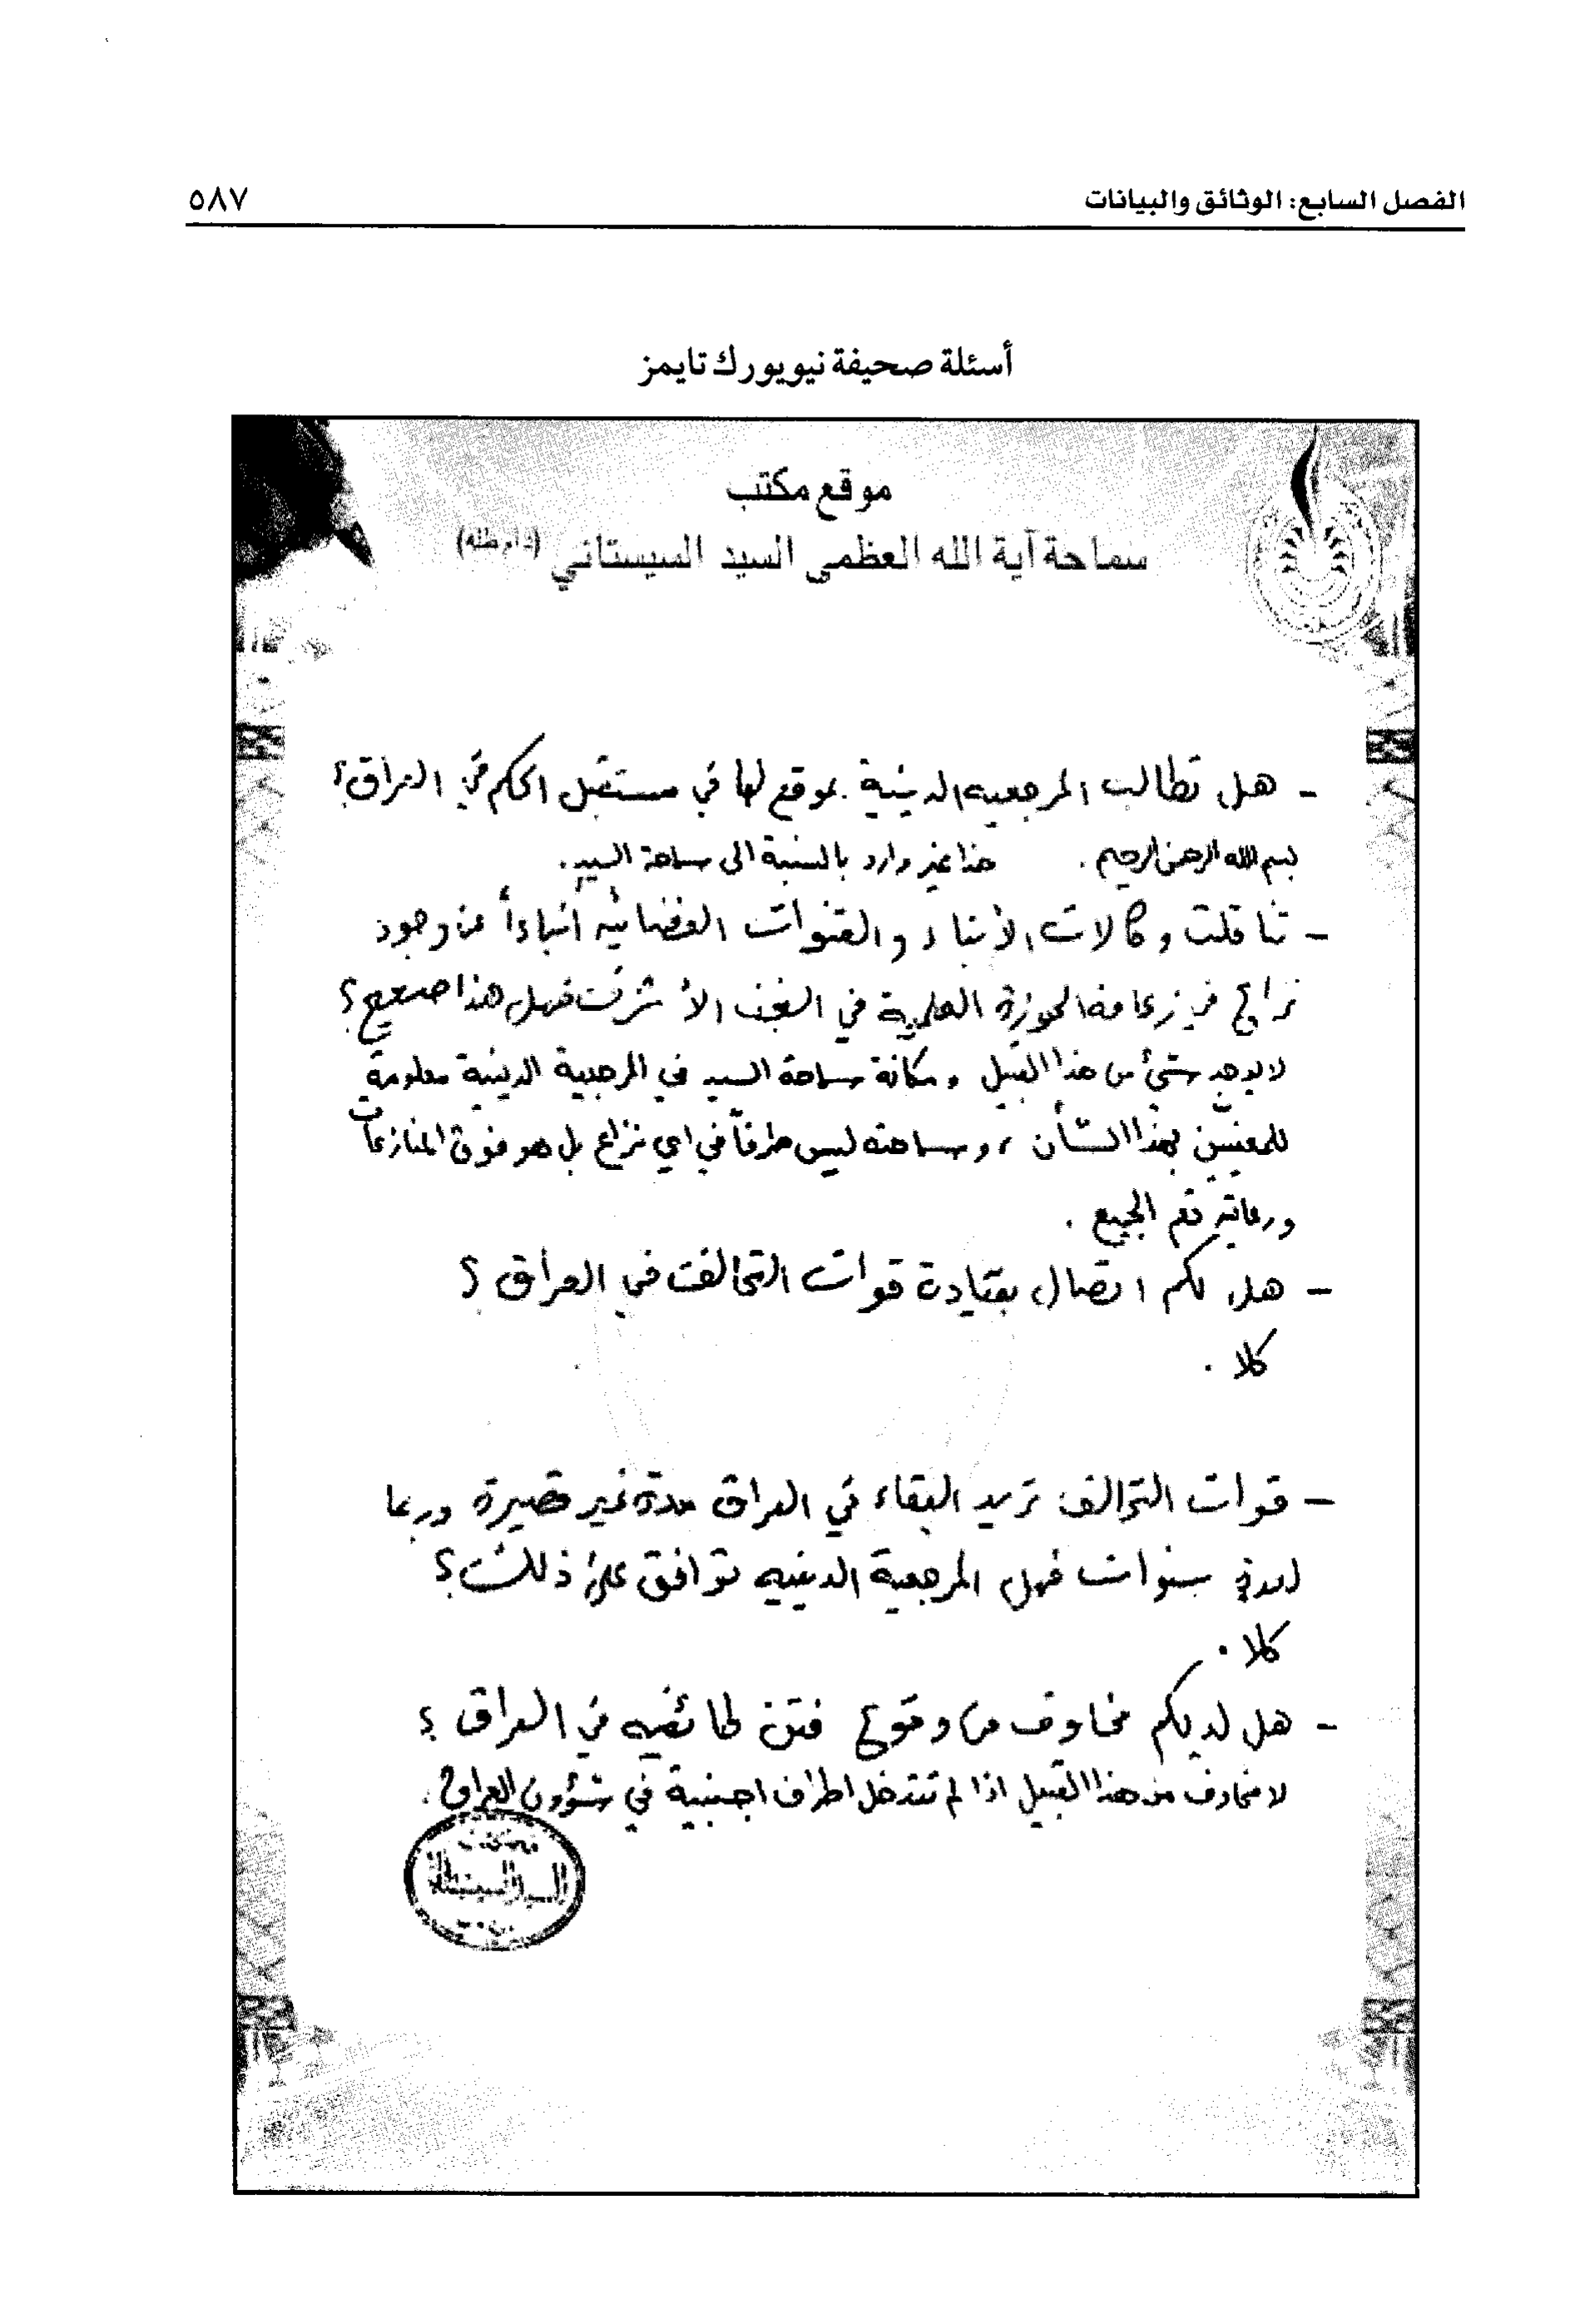 الفصل السابع: الوثائق والبيانات ٥٨٧
أسئلة صحيفة نيويورك تايمز
موقع مكتب
سماحة آية الله العظمى السيد السيستاني (دام ظله)
- هل تطالب المرجعيه الدينية بموقع لها في مستقبل الحكم في العراق؟
بسم الله الرحمن الرحيم . هذا غير وارد بالنسبة الى سماحة السيد .
- تناقلت وكالات الأنباء والقنوات الفضائيه أنباءاً عن وجود
نزاع في زعامة الحوزة العلمية في النجف الأشرف فهل هذا صحيح؟
لا يوجد شيئ من هذا القبيل ومكانة سماحة السيد في المرجعية الدينية معلومة
للمعنيين بهذا الشأن ، وسماحته ليس طرفاً في اي نزاع بل هو فوق المنازعات
ورعايته تعم الجميع .
- هل لكم اتصال بقيادة قوات التحالف في العراق ؟
كلا .
- قوات التحالف تريد البقاء في العراق مدة غير قصيرة وربما
لعدة سنوات فهل المرجعية الدينيه توافق على ذلك؟
كلا .
- هل لديكم مخاوف من وقوع فتن طائفيه في العراق ؟
لا مخاوف من هذا القبيل اذا لم تتدخل اطراف اجنبية في شؤون العراق .
مكتب
السيد السيستاني